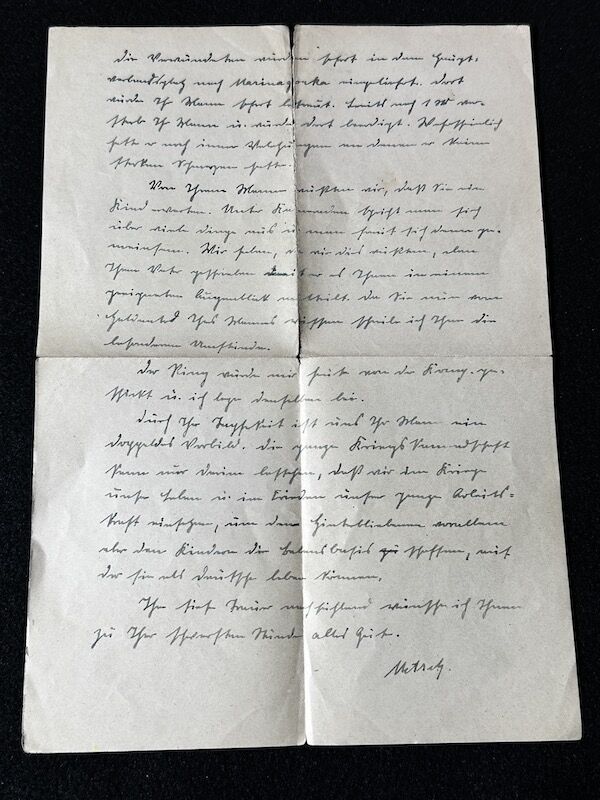 die Verwundeten wurden sofort in den Haupt-
verbandsplatz nach Marinagorka eingeliefert. Dort
wurde Ihr Mann sofort betreut. Bereits nach 1 Std. ver-
starb Ihr Mann u. wurde dort beerdigt. Wahrscheinlich
hatte er noch innere Verletzungen an denen er keine
starken Schmerzen hatte.
Von Ihrem Manne wußten wir, daß Sie ein
Kind erwarten. Unter Kameraden spricht man sich
über viele Dinge aus u. man freut sich dann ge-
meinsam. Wir haben, da wir dies wußten, an
Ihren Vater geschrieben damit er es Ihnen in einem
geeigneten Augenblick mitteilt. Da Sie nun vom
Heldentod Ihres Mannes wissen schreibe ich Ihnen die
besonderen Umstände.
Der Ring wurde mir heute von der Komp. ge-
schickt u. ich lege denselben bei.
Durch Ihre Tapferkeit ist uns Ihr Mann ein
doppeltes Vorbild. Die ganze Kriegskameradschaft
kann nur darin bestehen, daß wir im Kriege
unser Leben u. im Frieden unsere ganze Arbeits-
kraft einsetzen, um den Hinterbliebenen vorallem
aber den Kindern die Lebensbasis zu schaffen, mit
der sie als Deutsche leben können.
Ihre tiefe Trauer mitfühlend wünsche ich Ihnen
zu Ihrer schwersten Stunde alles Gute.